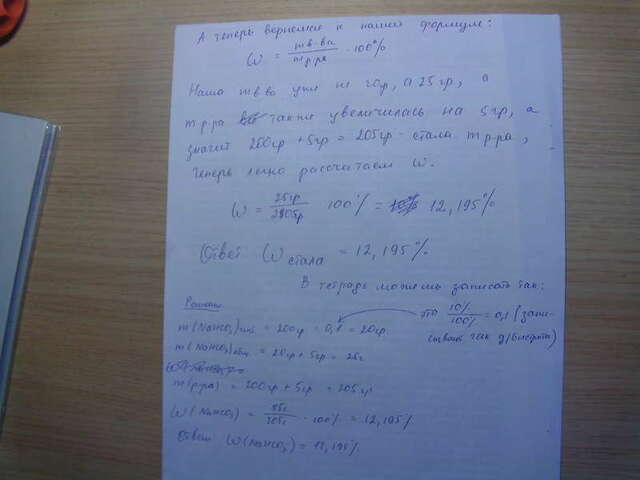 А теперь вернемся к нашей формуле:
ω = m в-ва / m р-ра · 100%
Наша m в-ва уже не 20гр, а 25 гр, а
m р-ра также увеличилась на 5гр, а
значит 200гр + 5гр = 205гр - стала m р-ра,
теперь легко рассчитаем ω.
ω = 25гр / 205гр 100% = 12,195%
Ответ ω стала = 12,195%
В тетрадь можешь записать так:
Решение
m(NaHCO₃) = 200гр · 0,1 = 20гр.
это 10% / 100% = 0,1 (запи-
сывай так д/быстроты)
m(NaHCO₃) общ = 20гр + 5гр = 25г
m(р-ра) = 200гр + 5гр = 205гр
ω(NaHCO₃) = 25г / 205г · 100% = 12,195%
Ответ ω(NaHCO₃) = 12,195%